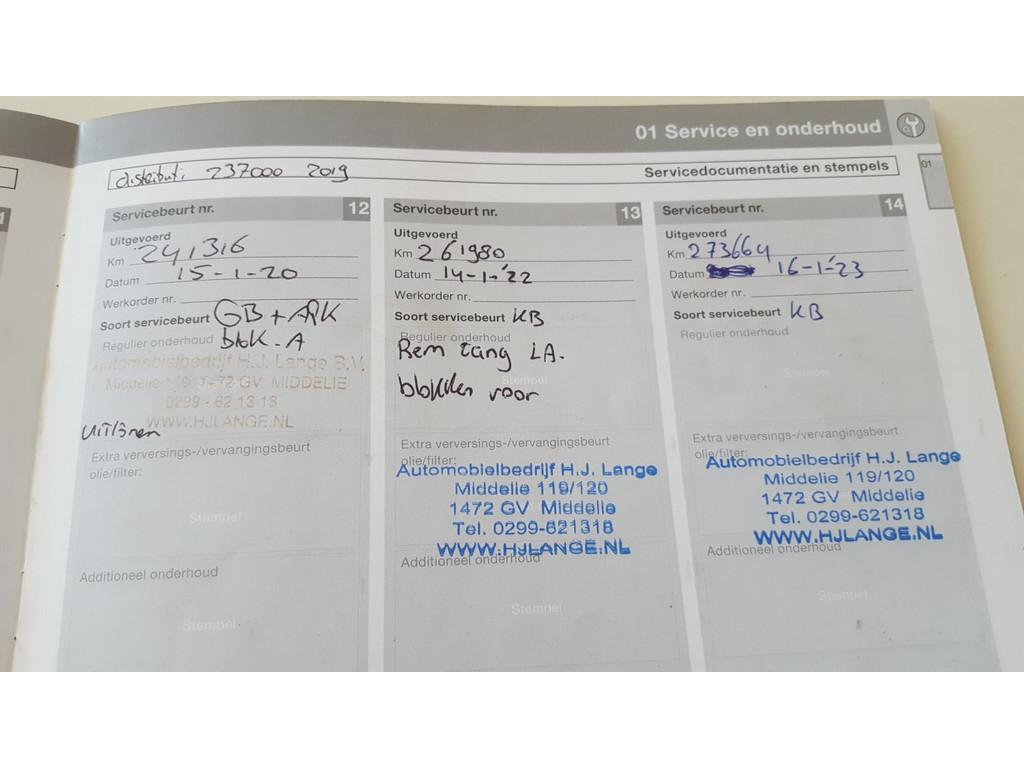 01 Service en onderhoud
distributi 237000 2019
Servicedocumentatie en stempels
01
Servicebeurt nr. 12
Uitgevoerd
Km 241316
Datum 15-1-20
Werkorder nr.
Soort servicebeurt GB + ARK
Regulier onderhoud blok-A
Automobielbedrijf H.J. Lange B.V.
Middelie 119 1472 GV MIDDELIE
0299 - 62 13 18
WWW.HJLANGE.NL
uitlijnen
Extra verversings-/vervangingsbeurt
olie/filter:
Stempel
Additioneel onderhoud
Stempel
Servicebeurt nr. 13
Uitgevoerd
Km 261980
Datum 14-1-'22
Werkorder nr.
Soort servicebeurt KB
Regulier onderhoud
Rem tang LA.
Stempel
blokken voor
Extra verversings-/vervangingsbeurt
olie/filter:
Automobielbedrijf H.J. Lange
Middelie 119/120
1472 GV Middelie
Tel. 0299-621318
WWW.HJLANGE.NL
Additioneel onderhoud
Stempel
Servicebeurt nr. 14
Uitgevoerd
Km 273664
Datum 16-1-'23
Werkorder nr.
Soort servicebeurt KB
Regulier onderhoud
Stempel
Extra verversings-/vervangingsbeurt
olie/filter:
Automobielbedrijf H.J. Lange
Middelie 119/120
1472 GV Middelie
Tel. 0299-621318
WWW.HJLANGE.NL
Additioneel onderhoud
Stempel